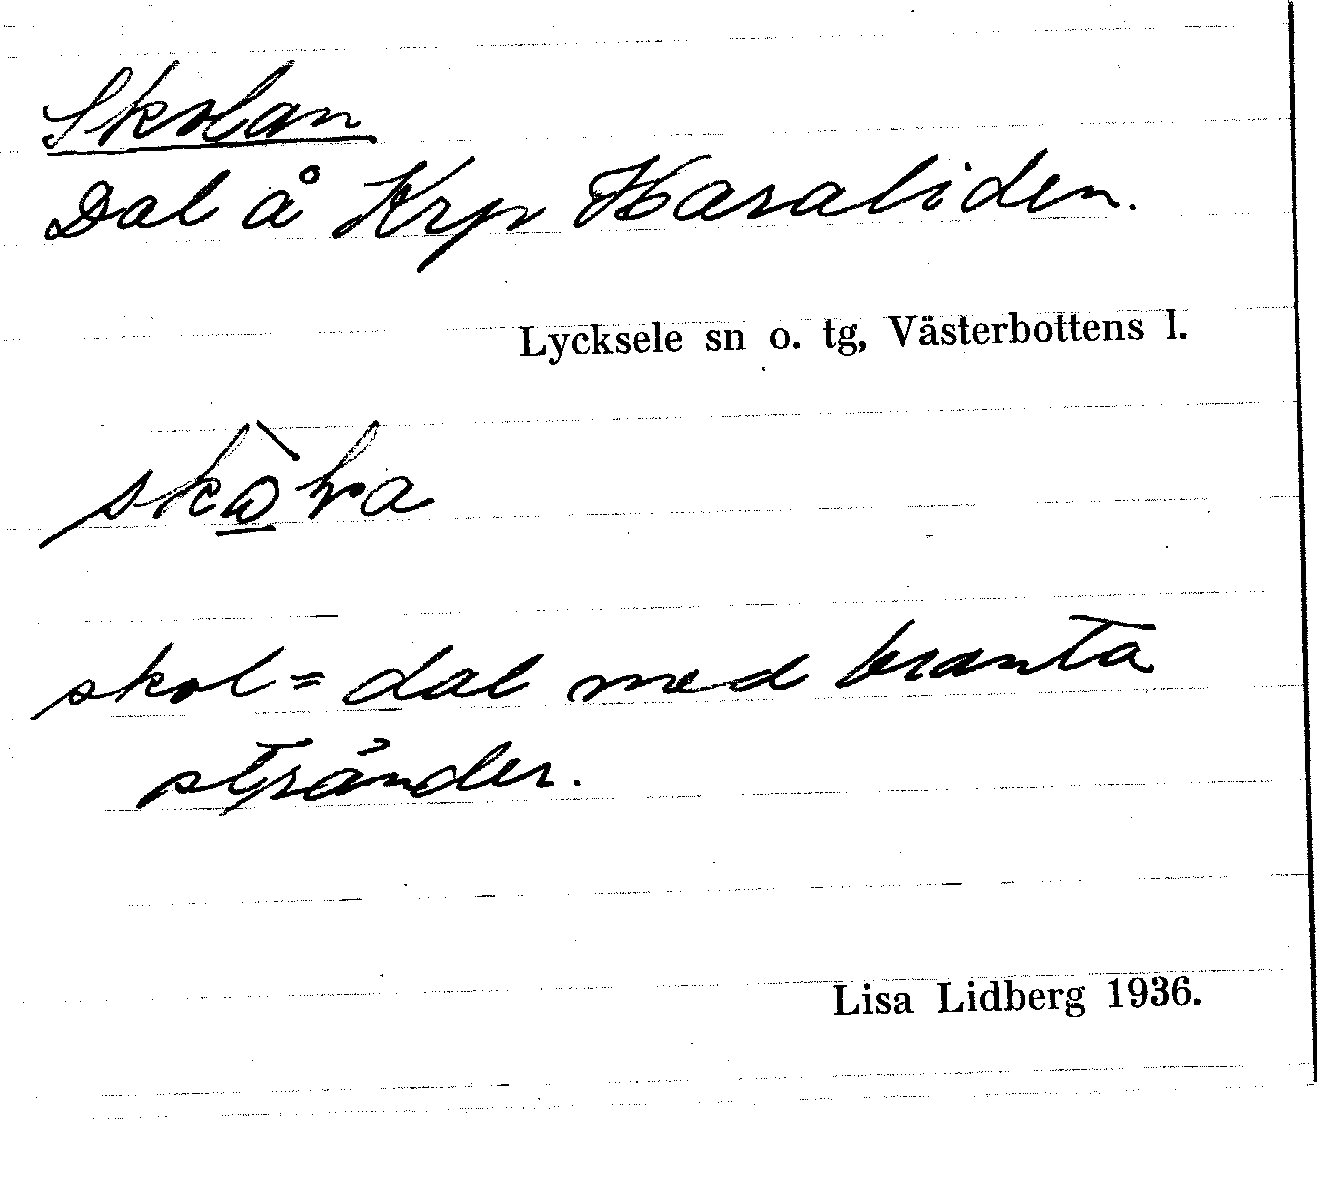 Skolan
Dal å Krp Haraliden.
Lycksele sn o. tg, Västerbottens l.
skol = dal med branta
stränder.
Lisa Lidberg 1936.